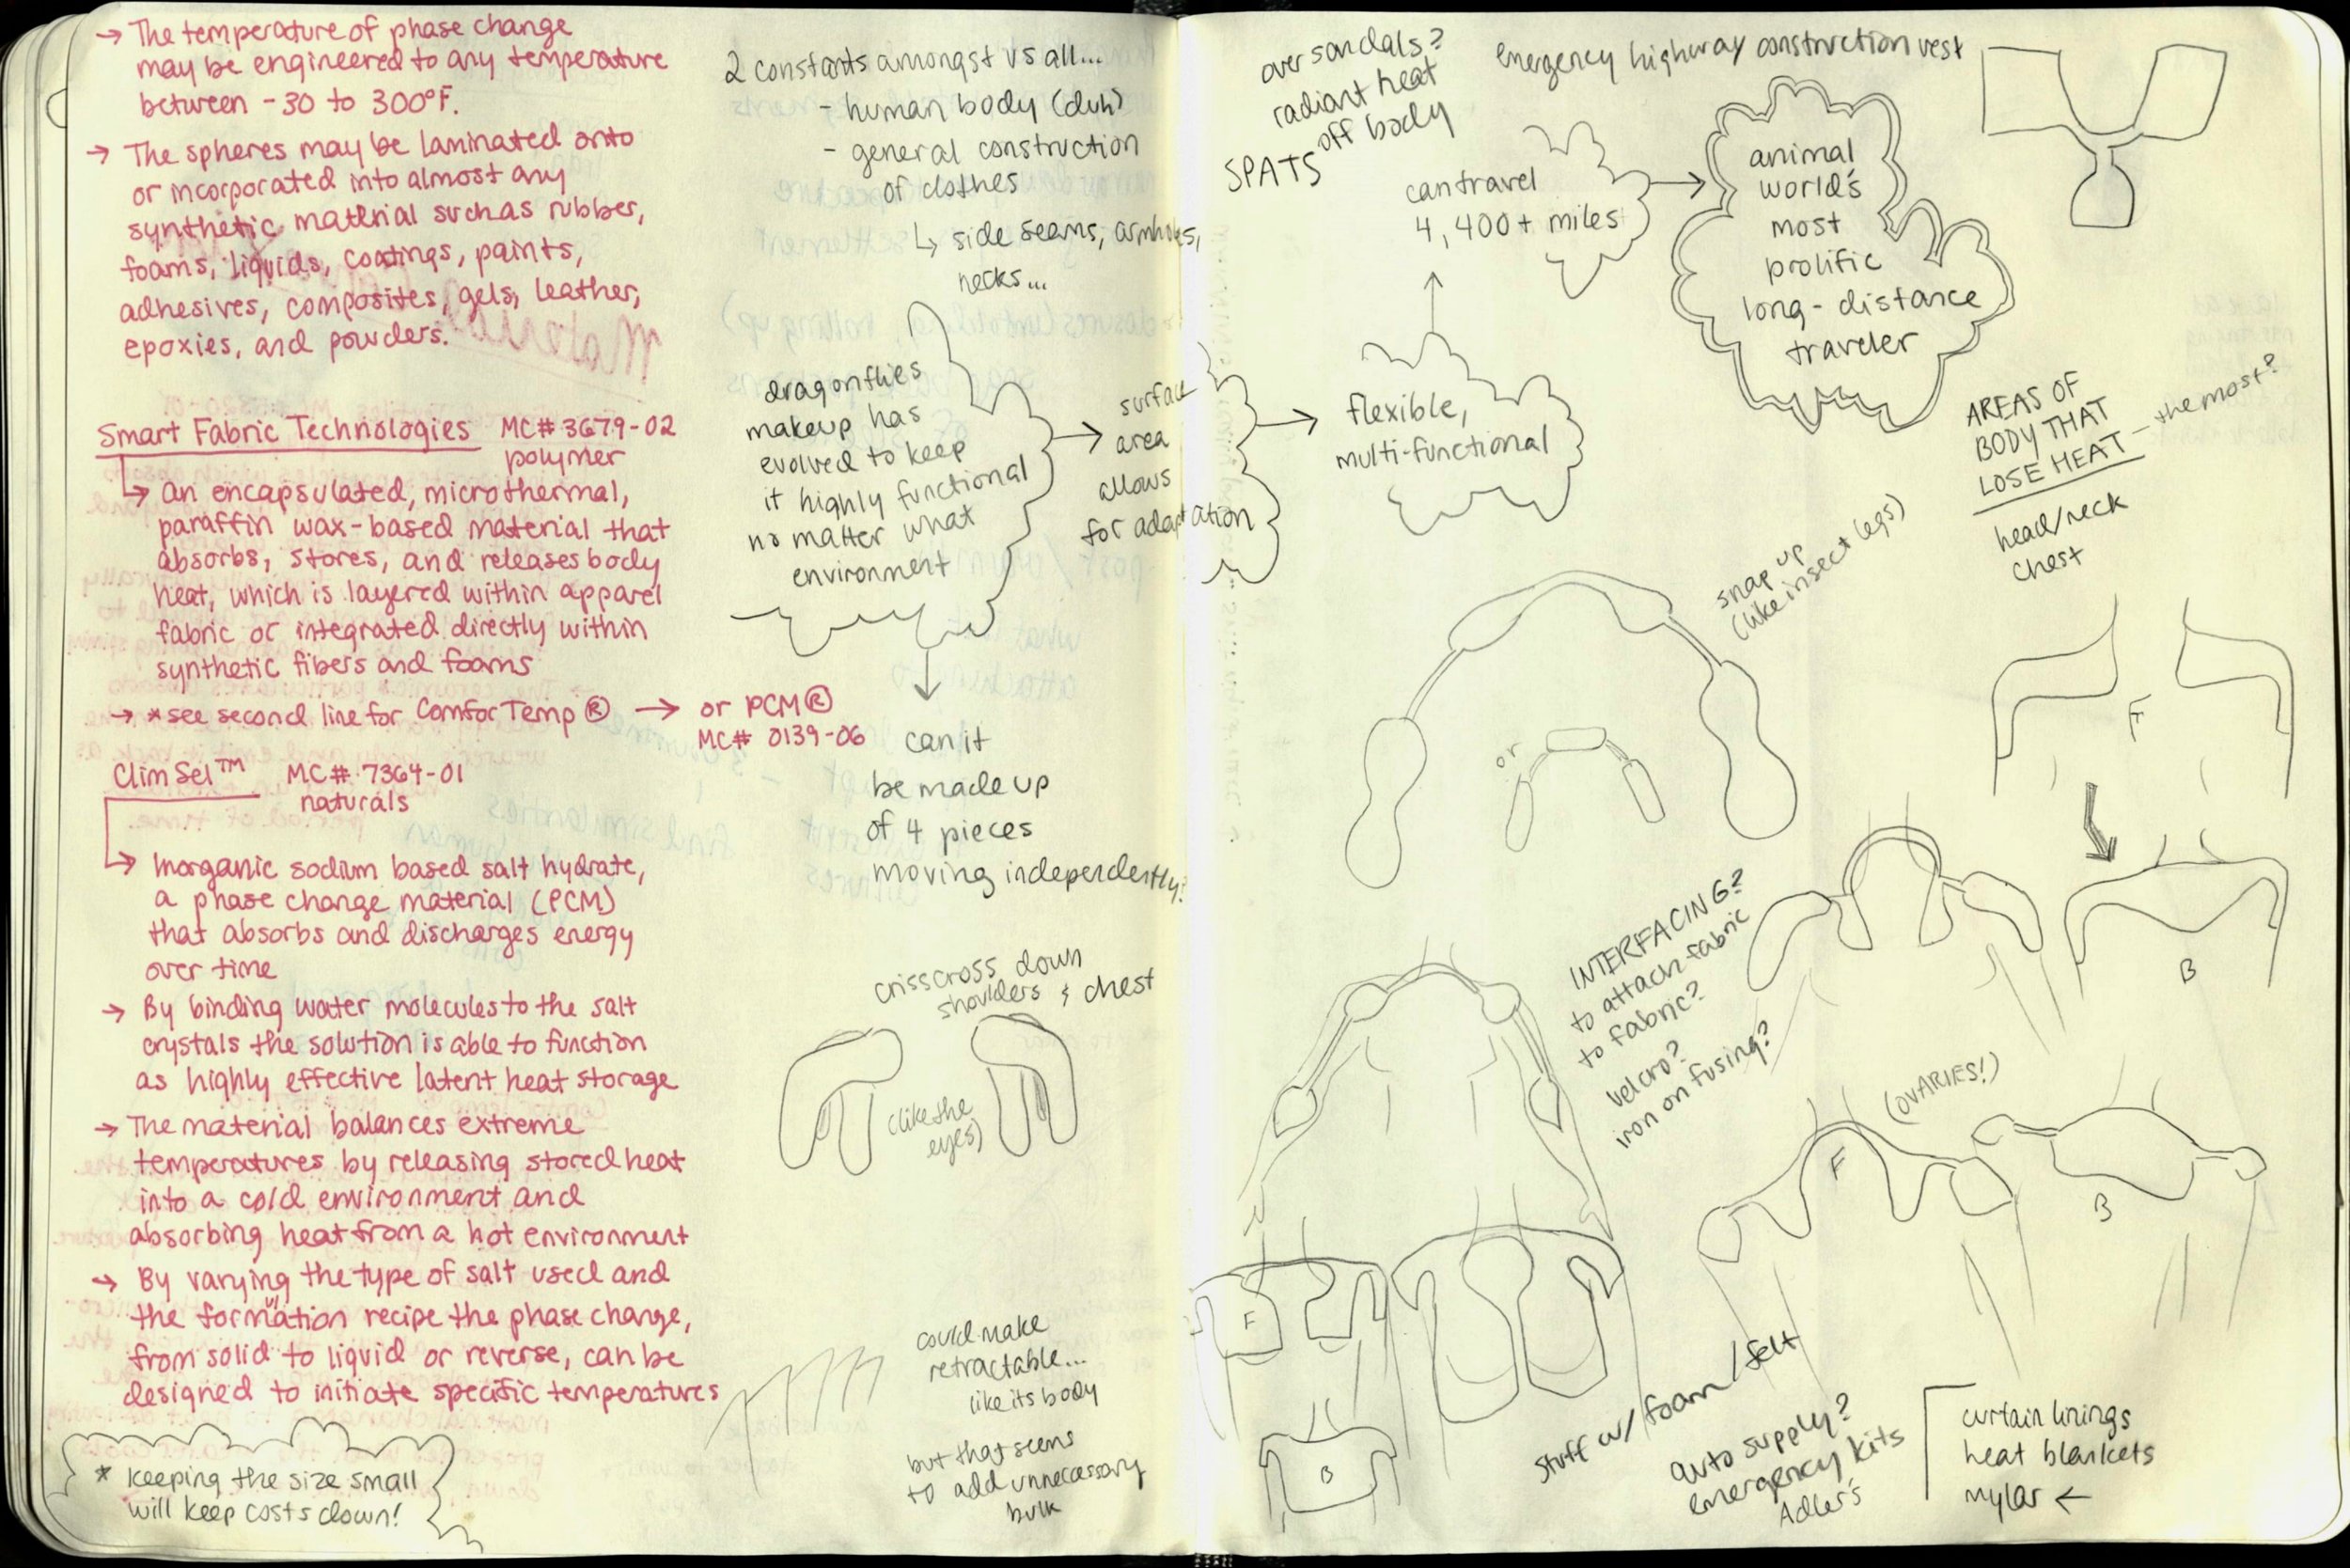 → The temperature of phase change
may be engineered to any temperature
between -30 to 300°F.
→ The spheres may be laminated onto
or incorporated into almost any
synthetic material such as rubber,
foams, liquids, coatings, paints,
adhesives, composites, gels, leather,
epoxies, and powders.
Smart Fabric Technologies MC# 3679-02
polymer
↳ An encapsulated, microthermal,
paraffin wax-based material that
absorbs, stores, and releases body
heat, which is layered within apparel
fabric or integrated directly within
synthetic fibers and foams
→ *see second line for ComforTemp® → or PCM®
MC# 0139-06
ClimSel™ MC# 7364-01
naturals
↳ Inorganic sodium based salt hydrate,
a phase change material (PCM)
that absorbs and discharges energy
over time
→ By binding water molecules to the salt
crystals the solution is able to function
as highly effective latent heat storage
→ The material balances extreme
temperatures by releasing stored heat
into a cold environment and
absorbing heat from a hot environment
→ By varying the type of salt used and
the formulation recipe the phase change,
from solid to liquid or reverse, can be
designed to initiate specific temperatures
* keeping the size small
will keep costs down!
2 constants amongst us all...
- human body (duh)
- general construction
of clothes
↳ side seams, armholes,
necks...
dragonflies
makeup has
evolved to keep
it highly functional
no matter what
environment
→ surface
area
allows
for adaptation
→ flexible,
multi-functional
can travel
4,400+ miles
→ animal
world's
most
prolific
long-distance
traveler
can it
be made up
of 4 pieces
moving independently?
crisscross down
shoulders & chest
(like the
eyes)
could make
retractable...
like its body
but that seems
to add unnecessary
bulk
over sandals?
radiant heat
off body
SPATS
emergency highway construction vest
AREAS OF
BODY THAT
LOSE HEAT - the most?
head/neck
chest
snap up
(like insect legs)
or
F
B
INTERFACING?
to attach fabric
to fabric?
velcro?
iron on fusing?
(OVARIES!)
F
B
F
B
stuff w/ foam/felt
auto supply?
emergency kits
Adler's
curtain linings
heat blankets
mylar ←